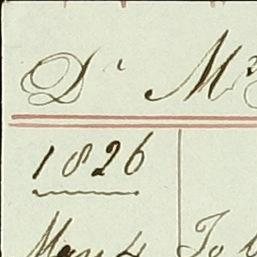 Dr M
1826
May 4 To